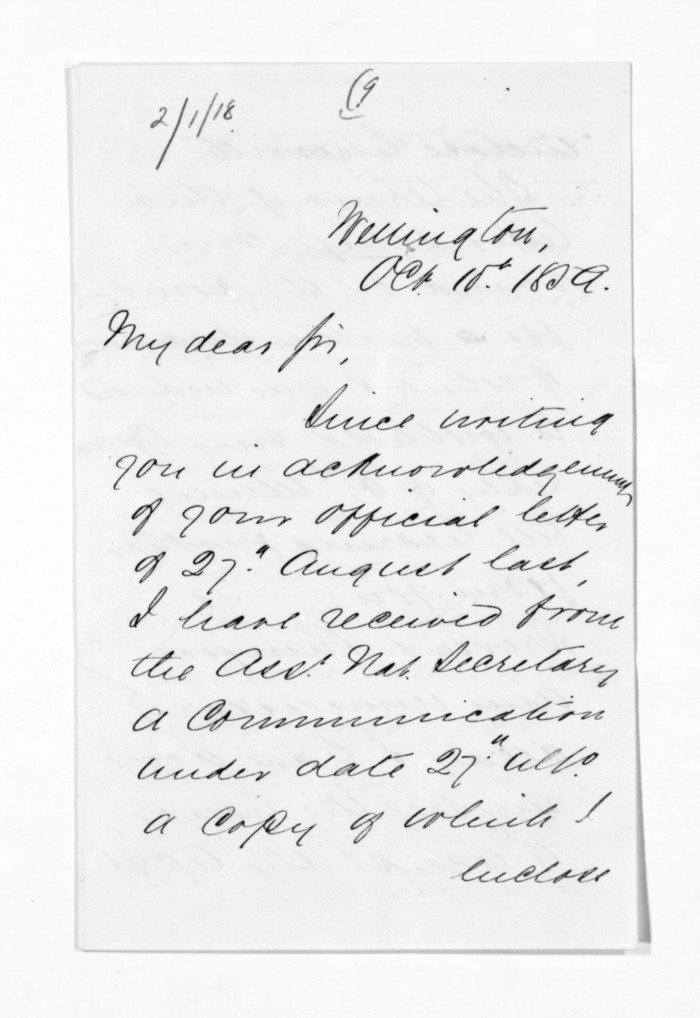 2/1/18
(9
Wellington,
Oct. 10th 1859.
My dear Sir,
Since writing
you in acknowledgement
of your official letter
of 27th August last,
I have received from
the Asst. Nat. Secretary
a Communication
under date 27th Ulto.
a copy of which I
enclose